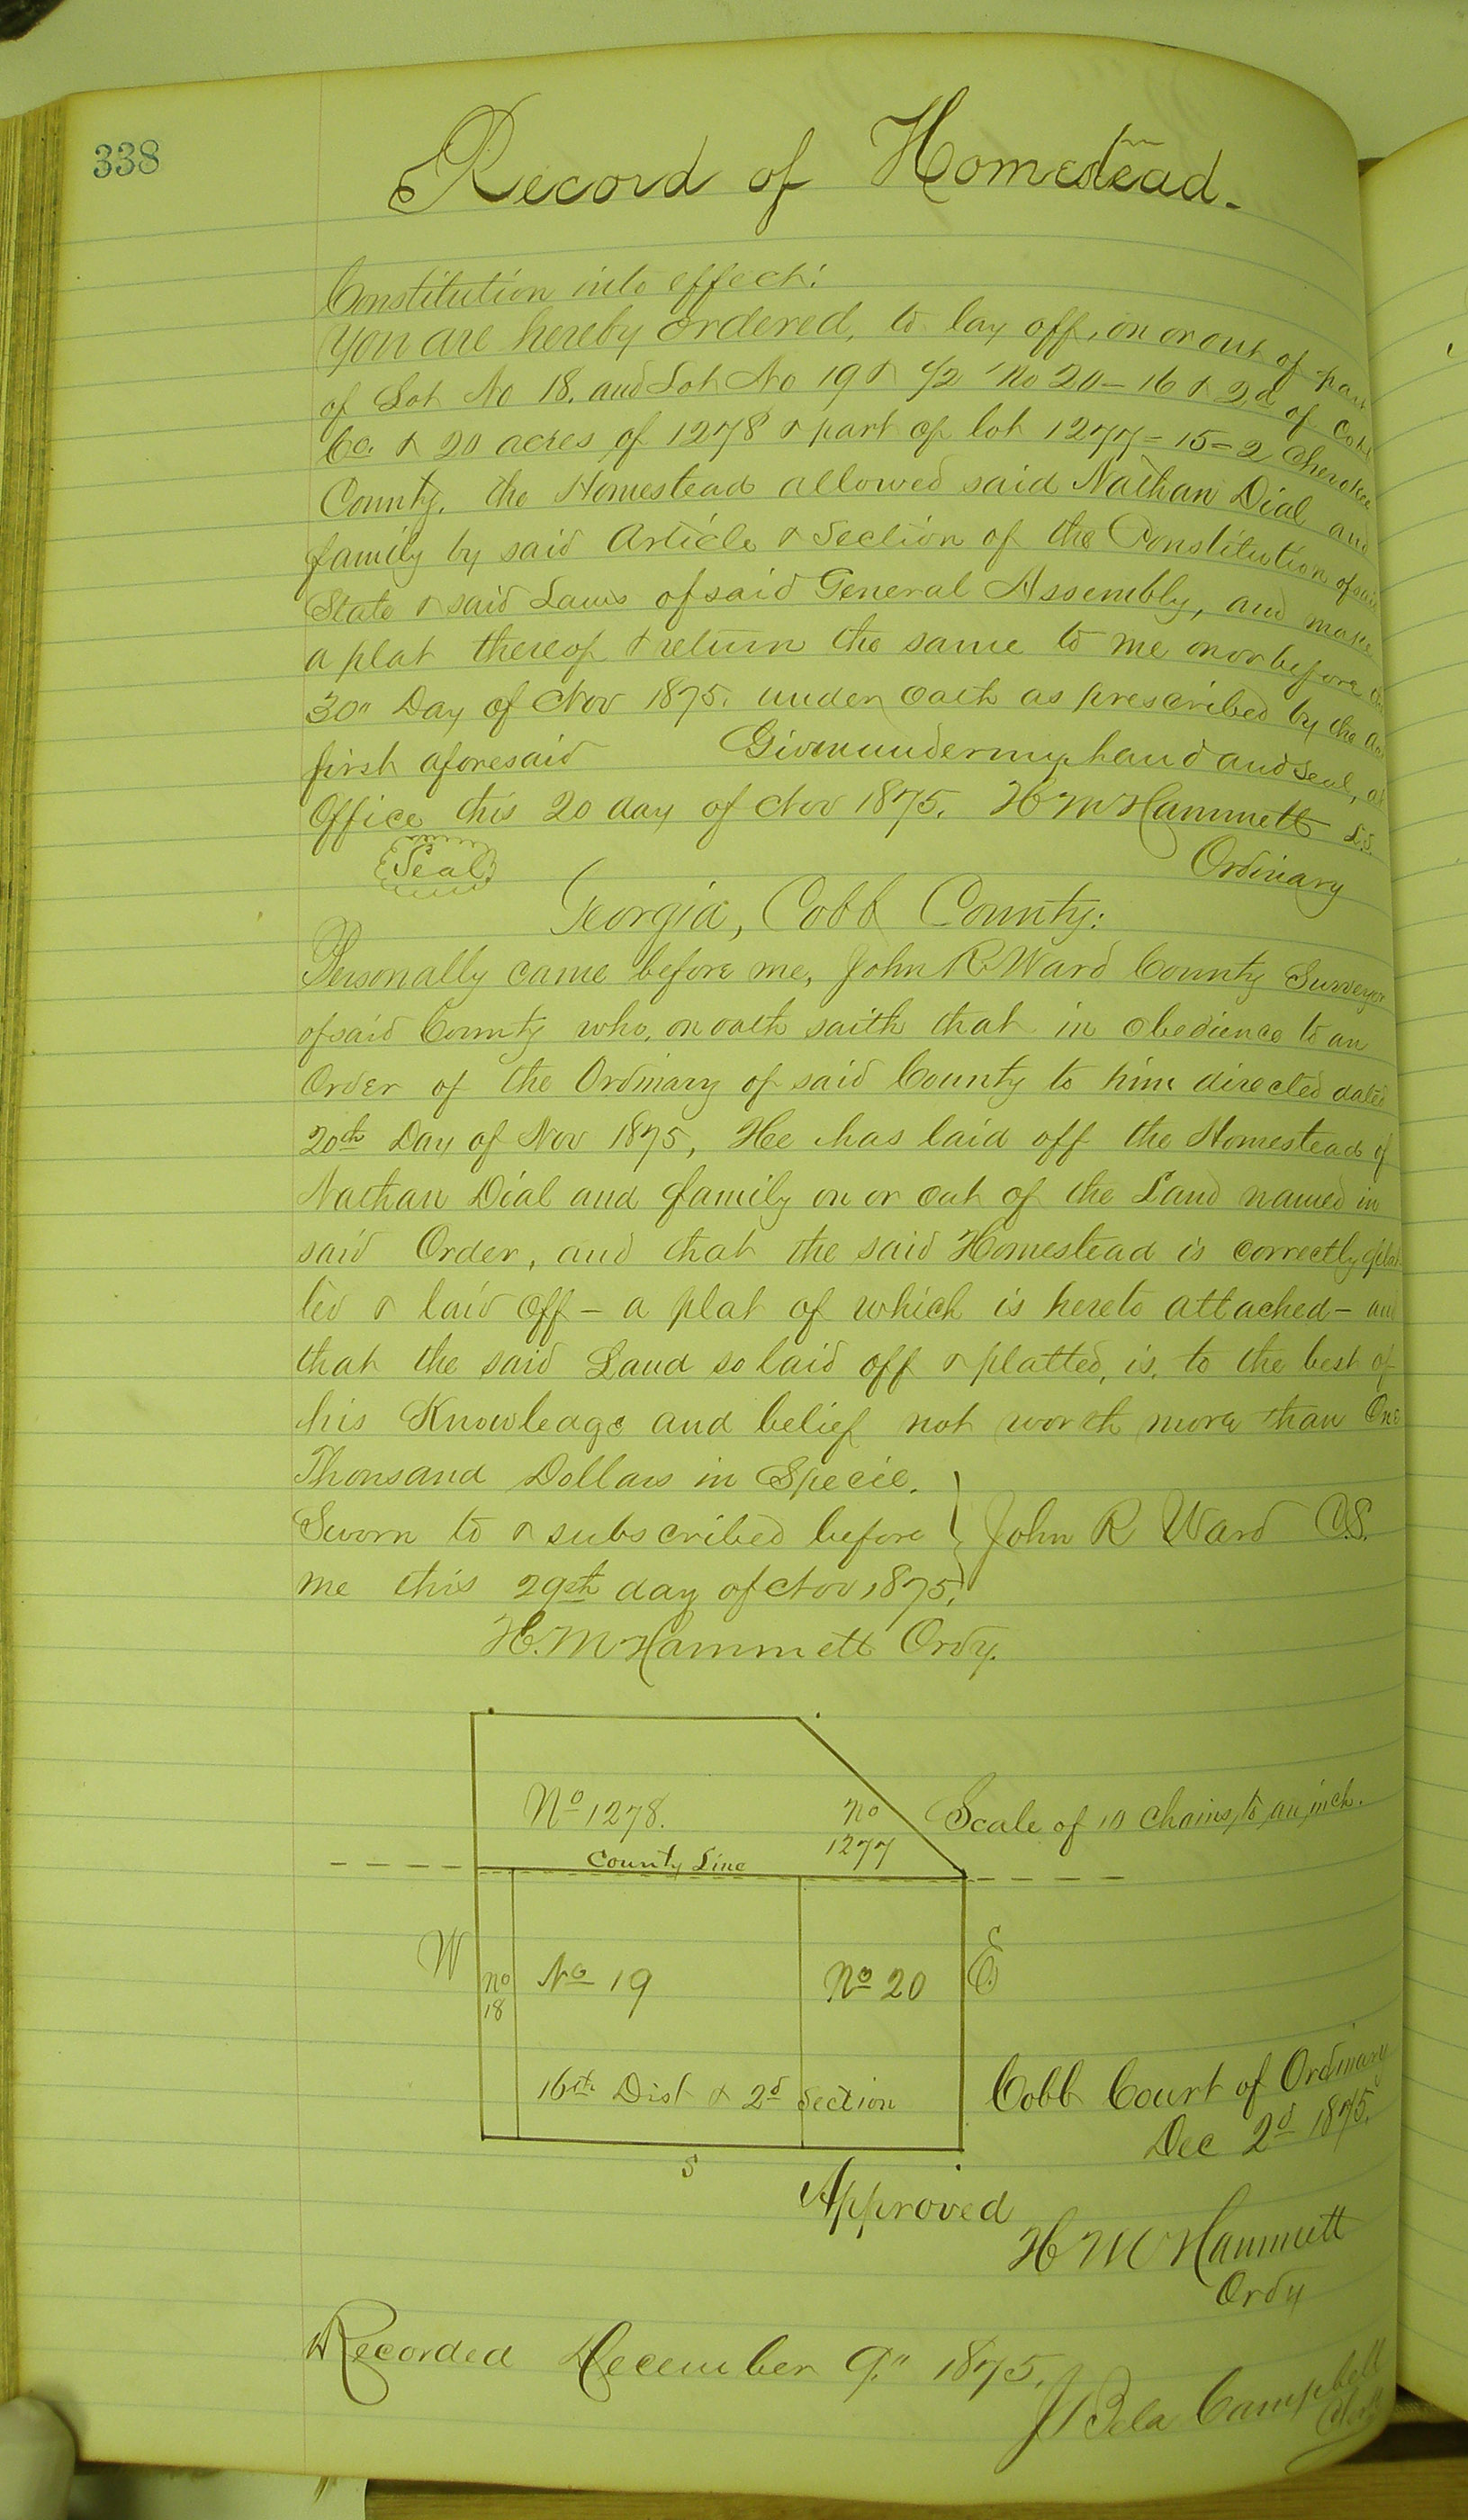 338
Record of Homestead.
Constitution into effect:
You are hereby ordered, to lay off, on or out of part
of Lot No 18. and Lot No 19 & 1/2 No 20 - 16 & 2d of Cobb
Co. & 20 acres of 1278 & part of lot 1277 - 15 = 2 Cherokee
County, the Homestead allowed said Nathan Dial and
family by said Article & Section of the Constitution of said
State & said Laws of said General Assembly, and make
a plat thereof & return the same to me on or before the
30" Day of Nov 1875. under oath as prescribed by the Act
first aforesaid Given under my hand and Seal, at
Office this 20 day of Nov 1875. H M Hammett L.S.
Seal Ordinary
Georgia, Cobb County:
Personally came before me, John R Ward County Surveyor
of said County who, on oath saith that in obedience to an
Order of the Ordinary of said County to him directed dated
20th Day of Nov 1875, He has laid off the Homestead of
Nathan Dial and family on or out of the Land named in
said Order, and that the said Homestead is correctly plat
ted & laid off - a plat of which is hereto attached - and
that the said Land so laid off & platted, is, to the best of
his Knowledge and belief not worth more than One
Thousand Dollars in Specie.
Sworn to & subscribed before } John R Ward C.S.
me this 29th day of Nov 1875.
H. M Hammett Ordy.
No 1278.
No
1277
Scale of 10 Chains, to an, inch.
County Line
W
No
18
No 19
No 20
E
16th Dist & 2d Section
S
Cobb Court of Ordinary
Dec 2d 1875.
Approved
H M Hammett
Ordy
Recorded December 9." 1875.
Bela Campbell
Clerk